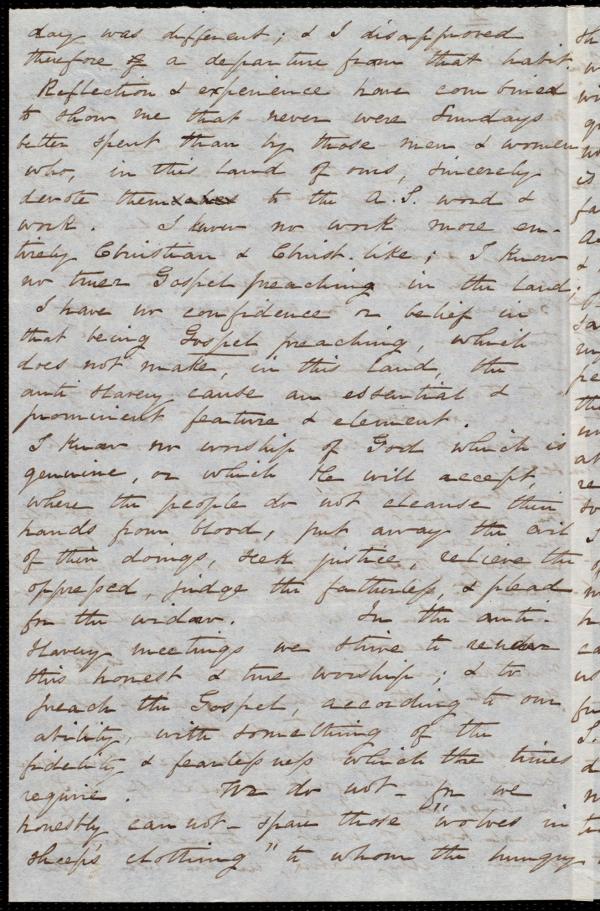 day was different; & I disapproved
therefore a departure from that habit.
Reflection & experience have combined
to show me that never were Sundays
better spent than by those men & women
who, in this land of ours, sincerely
devote themselves to the A.S. word &
work. I know no work more en-
tirely Christian & Christ-like; I know
no truer Gospel preaching in the land;
I have no confidence or belief in
that being Gospel preaching, which
does not make, in this land, the
anti slavery cause an essential &
prominent feature & element.
I know no worship of God which is
genuine, or which He will accept,
where the people do not cleanse their
hands from blood, put away the evil
of their doings, seek justice, relieve the
oppressed, judge the fatherless, & plead
for the widow. In the anti-
slavery meetings we strive to render
this honest & true worship; & to
preach the Gospel, according to our
ability, with something of the
fidelity & fearlessness which the times
require. We do not - for we
honestly can not - spare those "wolves in
sheep's clothing" to whom the hungry